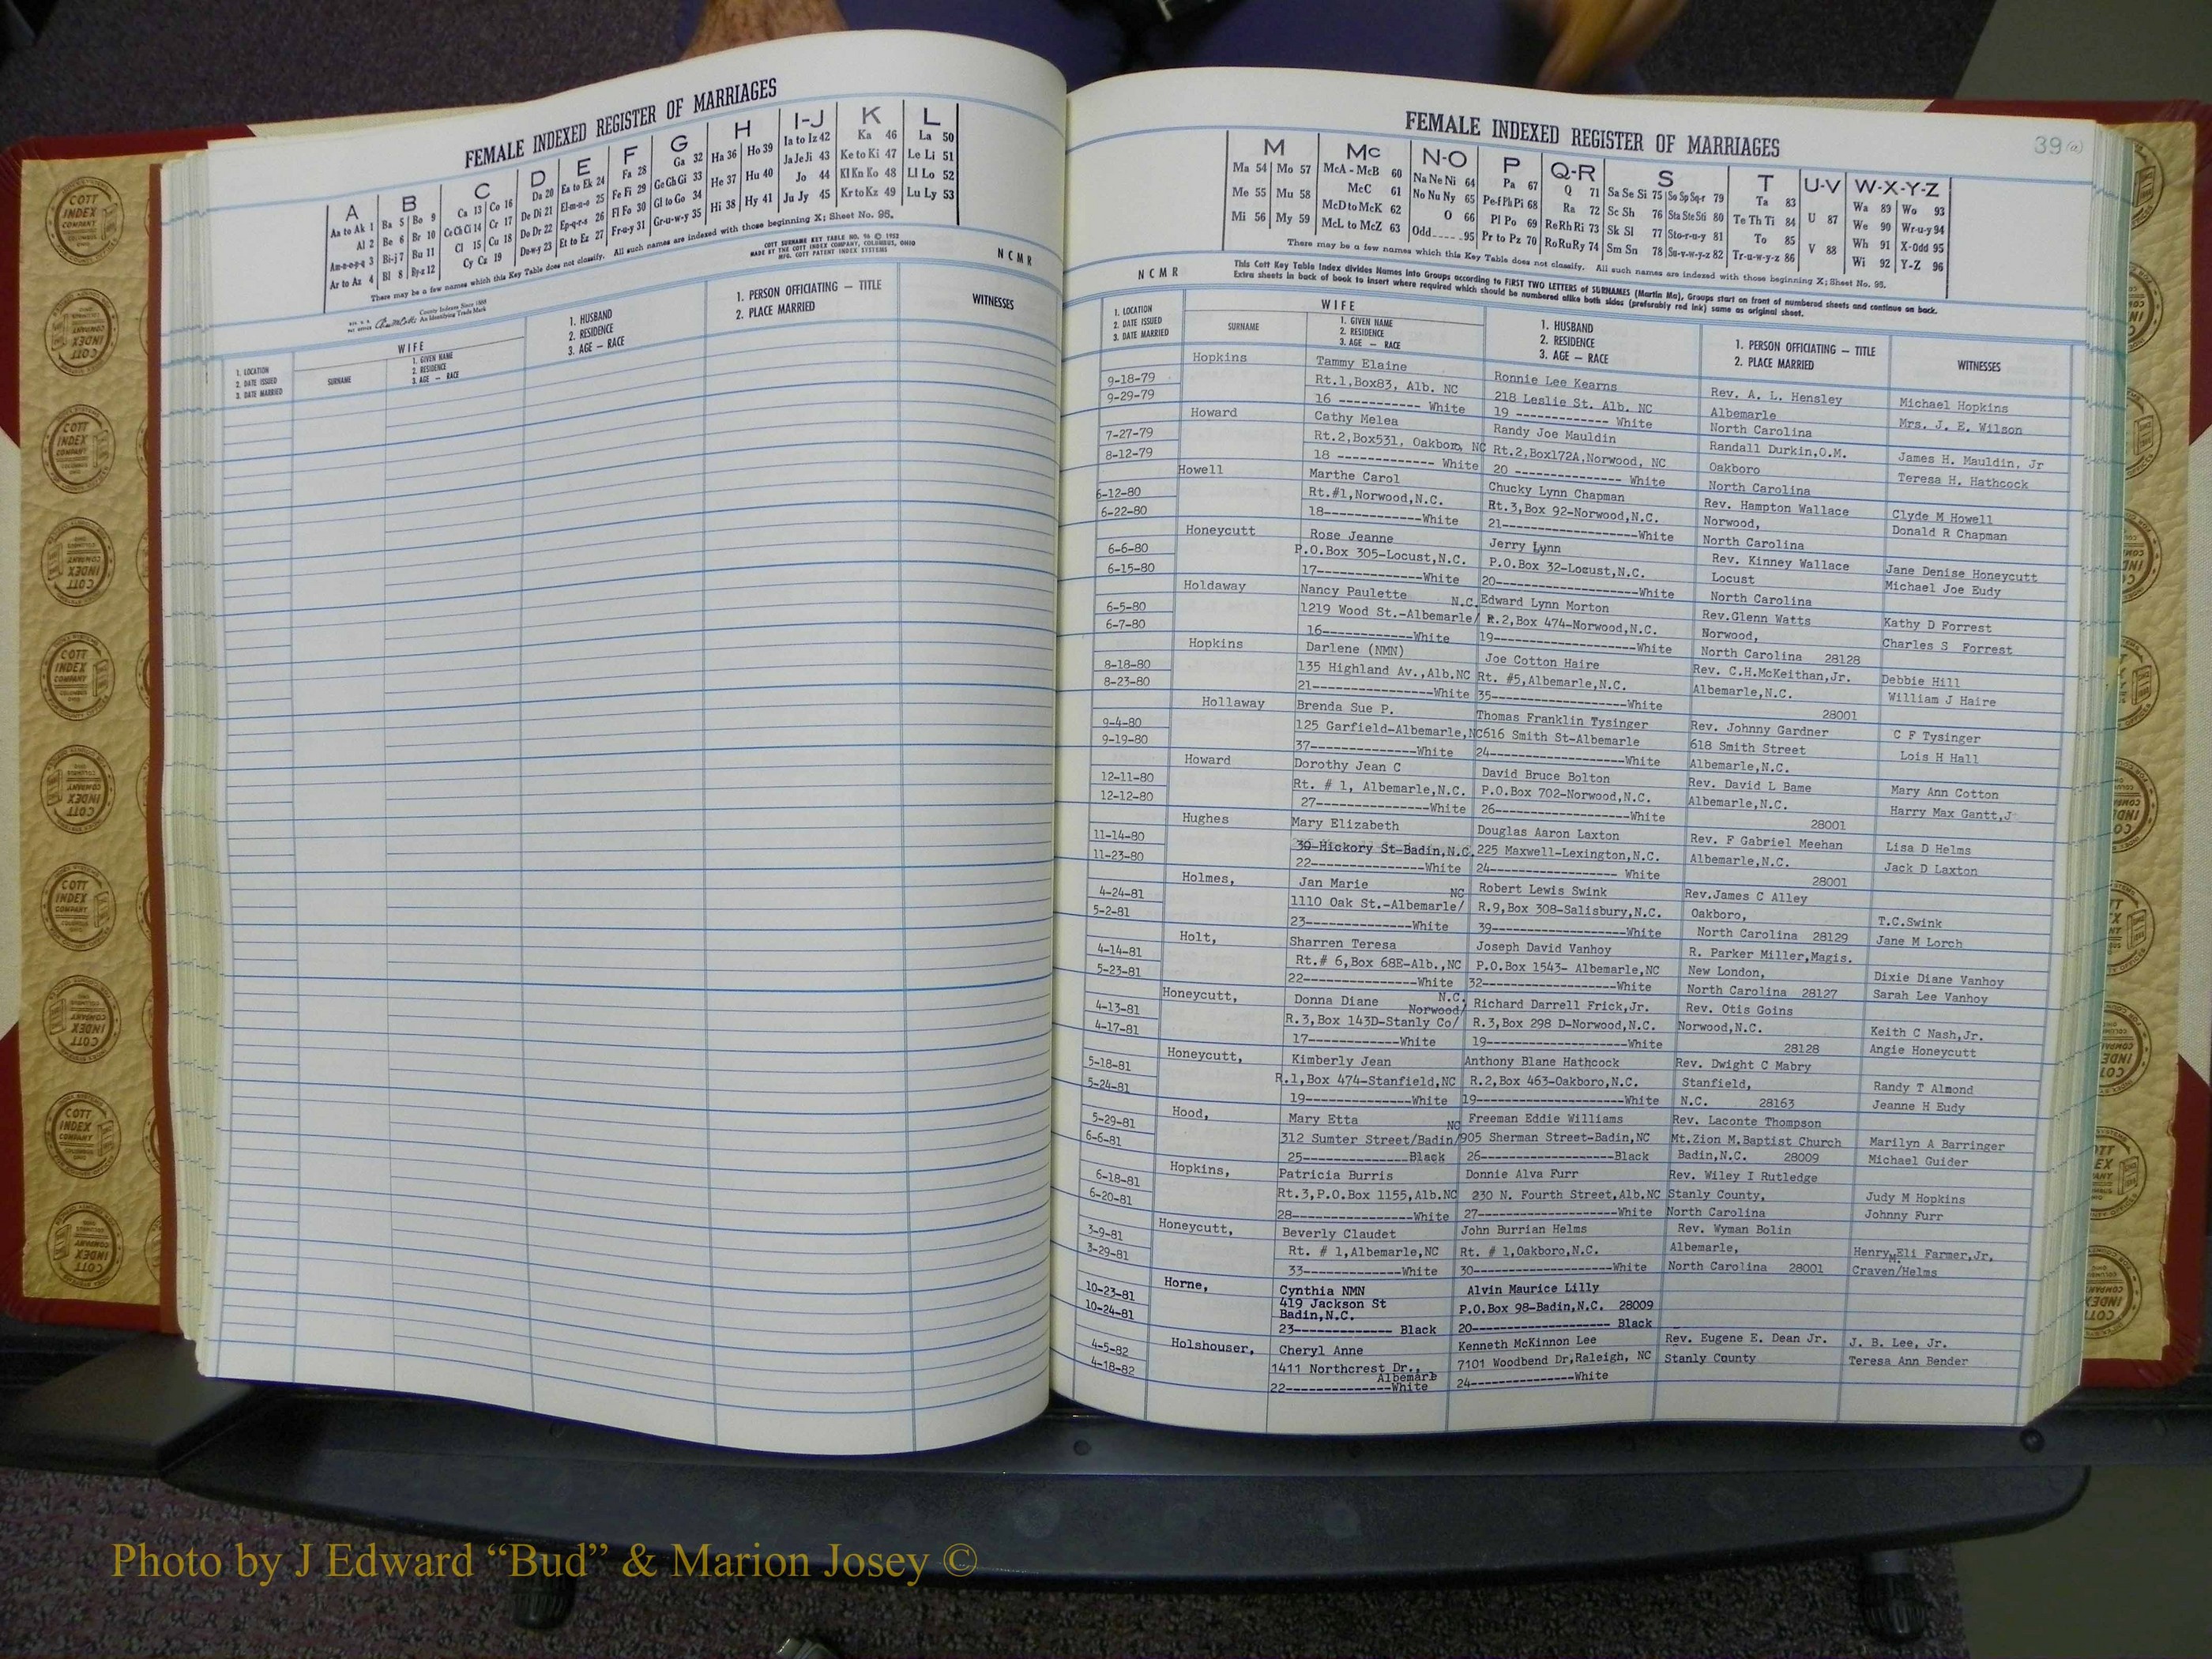 FEMALE INDEXED REGISTER OF MARRIAGES
A B C D E F G H I-J K L
Aa to Ak 1 Ba 5 Bo 9 Ca 13 Co 16 Da 20 Ea to Ek 24 Fa 28 Ga 32 Ha 36 Ho 39 Ia to Iz 42 Ka 46 La 50
Al 2 Be 6 Br 10 Ce Ch Ci 14 Cr 17 De Di 21 El-m-n-o 25 Fe Fi 29 Ge Gh Gi 33 He 37 Hu 40 Ja Je Ji 43 Ke to Ki 47 Le Li 51
Am-n-o-p-q 3 Bi-j 7 Bu 11 Cl 15 Cu 18 Do Dr 22 Ep-q-r-s 26 Fl Fo 30 Gl to Go 34 Hi 38 Hy 41 Jo 44 Kl Kn Ko 48 Ll Lo 52
Ar to Az 4 Bl 8 By-z 12 Cy Cz 19 Du-w-y 23 Et to Ez 27 Fr-u-y 31 Gr-u-w-y 35 Ju Jy 45 Kr to Kz 49 Lu Ly 53
There may be a few names which this Key Table does not classify. All such names are indexed with those beginning X; Sheet No. 95.
COTT SURNAME KEY TABLE NO. 96 © 1952
MADE BY THE COTT INDEX COMPANY, COLUMBUS, OHIO
MFG. COTT PATENT INDEX SYSTEMS
County Indexes Since 1888
An Identifying Trade Mark
N C M R
WIFE
1. LOCATION
2. DATE ISSUED
3. DATE MARRIED
SURNAME
1. GIVEN NAME
2. RESIDENCE
3. AGE — RACE
1. HUSBAND
2. RESIDENCE
3. AGE — RACE
1. PERSON OFFICIATING — TITLE
2. PLACE MARRIED
WITNESSES
FEMALE INDEXED REGISTER OF MARRIAGES
39 (a)
M Mc N-O P Q-R S T U-V W-X-Y-Z
Ma 54 Mo 57 McA - McB 60 Na Ne Ni 64 Pa 67 Q 71 Sa Se Si 75 So Sp Sq-r 79 Ta 83 U 87 Wa 89 Wo 93
Me 55 Mu 58 McC 61 No Nu Ny 65 Pe-f Ph Pi 68 Ra 72 Sc Sh 76 Sta Ste Sti 80 Te Th Ti 84 V 88 We 90 Wr-u-y 94
Mi 56 My 59 McD to McK 62 O 66 Pl Po 69 Re Rh Ri 73 Sk Sl 77 Sto-r-u-y 81 To 85 Wh 91 X-Odd 95
McL to McZ 63 Odd 95 Pr to Pz 70 Ro Ru Ry 74 Sm Sn 78 Su-v-w-y-z 82 Tr-u-w-y-z 86 Wi 92 Y-Z 96
There may be a few names which this Key Table does not classify. All such names are indexed with those beginning X; Sheet No. 95.
This Cott Key Table Index divides Names into Groups according to FIRST TWO LETTERS of SURNAMES (Martin Ma), Groups start on front of numbered sheets and continue on back.
Extra sheets in back of book to insert where required which should be numbered alike both sides (preferably red ink) same as original sheet.
N C M R
WIFE
1. LOCATION
2. DATE ISSUED
3. DATE MARRIED
SURNAME
1. GIVEN NAME
2. RESIDENCE
3. AGE — RACE
1. HUSBAND
2. RESIDENCE
3. AGE — RACE
1. PERSON OFFICIATING — TITLE
2. PLACE MARRIED
WITNESSES
Hopkins Tammy Elaine Ronnie Lee Kearns Rev. A. L. Hensley Michael Hopkins
9-18-79 Rt.1,Box83, Alb. NC 218 Leslie St. Alb. NC Albemarle Mrs. J. E. Wilson
9-29-79 16 ----------- White 19 ---------- White North Carolina
Howard Cathy Melea Randy Joe Mauldin Randall Durkin,O.M. James H. Mauldin, Jr
7-27-79 Rt.2,Box531, Oakboro, NC Rt.2,Box172A,Norwood, NC Oakboro Teresa H. Hathcock
8-12-79 18 ------------- White 20 ----------- White North Carolina
Howell Marthe Carol Chucky Lynn Chapman Rev. Hampton Wallace Clyde M Howell
6-12-80 Rt.#1,Norwood,N.C. Rt.3,Box 92-Norwood,N.C. Norwood, Donald R Chapman
6-22-80 18-------------White 21-----------------White North Carolina
Honeycutt Rose Jeanne Jerry Lynn Rev. Kinney Wallace Jane Denise Honeycutt
6-6-80 P.O.Box 305-Locust,N.C. P.O.Box 32-Locust,N.C. Locust Michael Joe Eudy
6-15-80 17--------------White 20-----------------White North Carolina
Holdaway Nancy Paulette N.C. Edward Lynn Morton Rev.Glenn Watts Kathy D Forrest
6-5-80 1219 Wood St.-Albemarle/ R.2,Box 474-Norwood,N.C. Norwood, Charles S Forrest
6-7-80 16------------White 19-----------------White North Carolina 28128
Hopkins Darlene (NMN) Joe Cotton Haire Rev. C.H.McKeithan,Jr. Debbie Hill
8-18-80 135 Highland Av.,Alb.NC Rt. #5,Albemarle,N.C. Albemarle,N.C. William J Haire
8-23-80 21-----------------White 35----------------White 28001
Hollaway Brenda Sue P. Thomas Franklin Tysinger Rev. Johnny Gardner C F Tysinger
9-4-80 125 Garfield-Albemarle,NC 616 Smith St-Albemarle 618 Smith Street Lois H Hall
9-19-80 37---------------White 24-----------------White Albemarle,N.C.
Howard Dorothy Jean C David Bruce Bolton Rev. David L Bame Mary Ann Cotton
12-11-80 Rt. # 1, Albemarle,N.C. P.O.Box 702-Norwood,N.C. Albemarle,N.C. Harry Max Gantt,J
12-12-80 27---------------White 26----------------White 28001
Hughes Mary Elizabeth Douglas Aaron Laxton Rev. F Gabriel Meehan Lisa D Helms
11-14-80 30-Hickory St-Badin,N.C. 225 Maxwell-Lexington,N.C. Albemarle,N.C. Jack D Laxton
11-23-80 22---------------White 24---------------- White 28001
Holmes, Jan Marie NC Robert Lewis Swink Rev.James C Alley T.C.Swink
4-24-81 1110 Oak St.-Albemarle/ R.9,Box 308-Salisbury,N.C. Oakboro, Jane M Lorch
5-2-81 23-------------White 39----------------White North Carolina 28129
Holt, Sharren Teresa Joseph David Vanhoy R. Parker Miller,Magis. Dixie Diane Vanhoy
4-14-81 Rt.# 6,Box 68E-Alb.,NC P.O.Box 1543- Albemarle,NC New London, Sarah Lee Vanhoy
5-23-81 22---------------White 32-----------------White North Carolina 28127
Honeycutt, Donna Diane N.C. Norwood/ Richard Darrell Frick,Jr. Rev. Otis Goins Keith C Nash,Jr.
4-13-81 R.3,Box 143D-Stanly Co/ R.3,Box 298 D-Norwood,N.C. Norwood,N.C. Angie Honeycutt
4-17-81 17------------White 19------------------White 28128
Honeycutt, Kimberly Jean Anthony Blane Hathcock Rev. Dwight C Mabry Randy T Almond
5-18-81 R.1,Box 474-Stanfield,NC R.2,Box 463-Oakboro,N.C. Stanfield, Jeanne H Eudy
5-24-81 19--------------White 19-------------------White N.C. 28163
Hood, Mary Etta NC Freeman Eddie Williams Rev. Laconte Thompson Marilyn A Barringer
5-29-81 312 Sumter Street/Badin/ 905 Sherman Street-Badin,NC Mt.Zion M.Baptist Church Michael Guider
6-6-81 25--------------Black 26-----------------Black Badin,N.C. 28009
Hopkins, Patricia Burris Donnie Alva Furr Rev. Wiley I Rutledge Judy M Hopkins
6-18-81 Rt.3,P.O.Box 1155,Alb.NC 230 N. Fourth Street,Alb.NC Stanly County, Johnny Furr
6-20-81 28-----------------White 27------------------White North Carolina
Honeycutt, Beverly Claudet John Burrian Helms Rev. Wyman Bolin Henry Eli Farmer,Jr,
3-9-81 Rt. # 1,Albemarle,NC Rt. # 1,Oakboro,N.C. Albemarle, Craven/Helms
3-29-81 33--------------White 30------------------White North Carolina 28001
Horne, Cynthia NMN Alvin Maurice Lilly
10-23-81 419 Jackson St P.O.Box 98-Badin,N.C. 28009
10-24-81 Badin,N.C.
23------------- Black 20------------------ Black
Holshouser, Cheryl Anne Kenneth McKinnon Lee Rev. Eugene E. Dean Jr. J. B. Lee, Jr.
4-5-82 1411 Northcrest Dr., 7101 Woodbend Dr,Raleigh, NC Stanly County Teresa Ann Bender
4-18-82 Albemarle
22--------------White 24---------------White
Photo by J Edward “Bud” & Marion Josey ©
COTT INDEX COMPANY